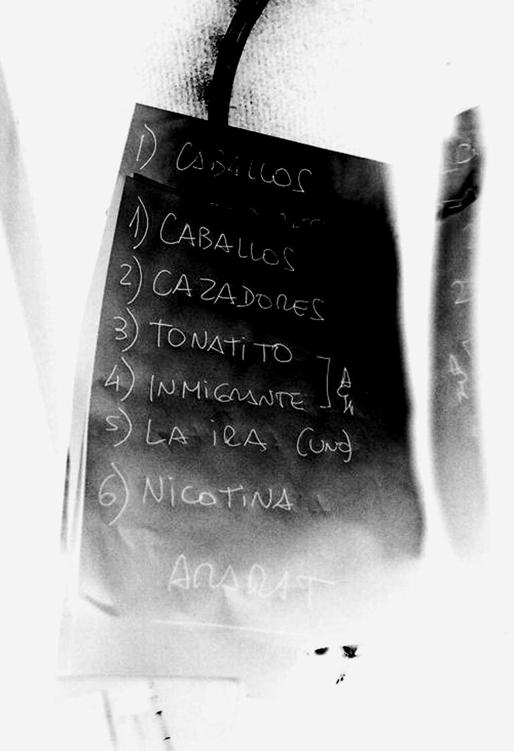 1) CABALLOS
1) CABALLOS
2) CAZADORES
3) TONATITO
4) INMIGRANTE
5) LA IRA (UNO)
6) NICOTINA
ARARAT